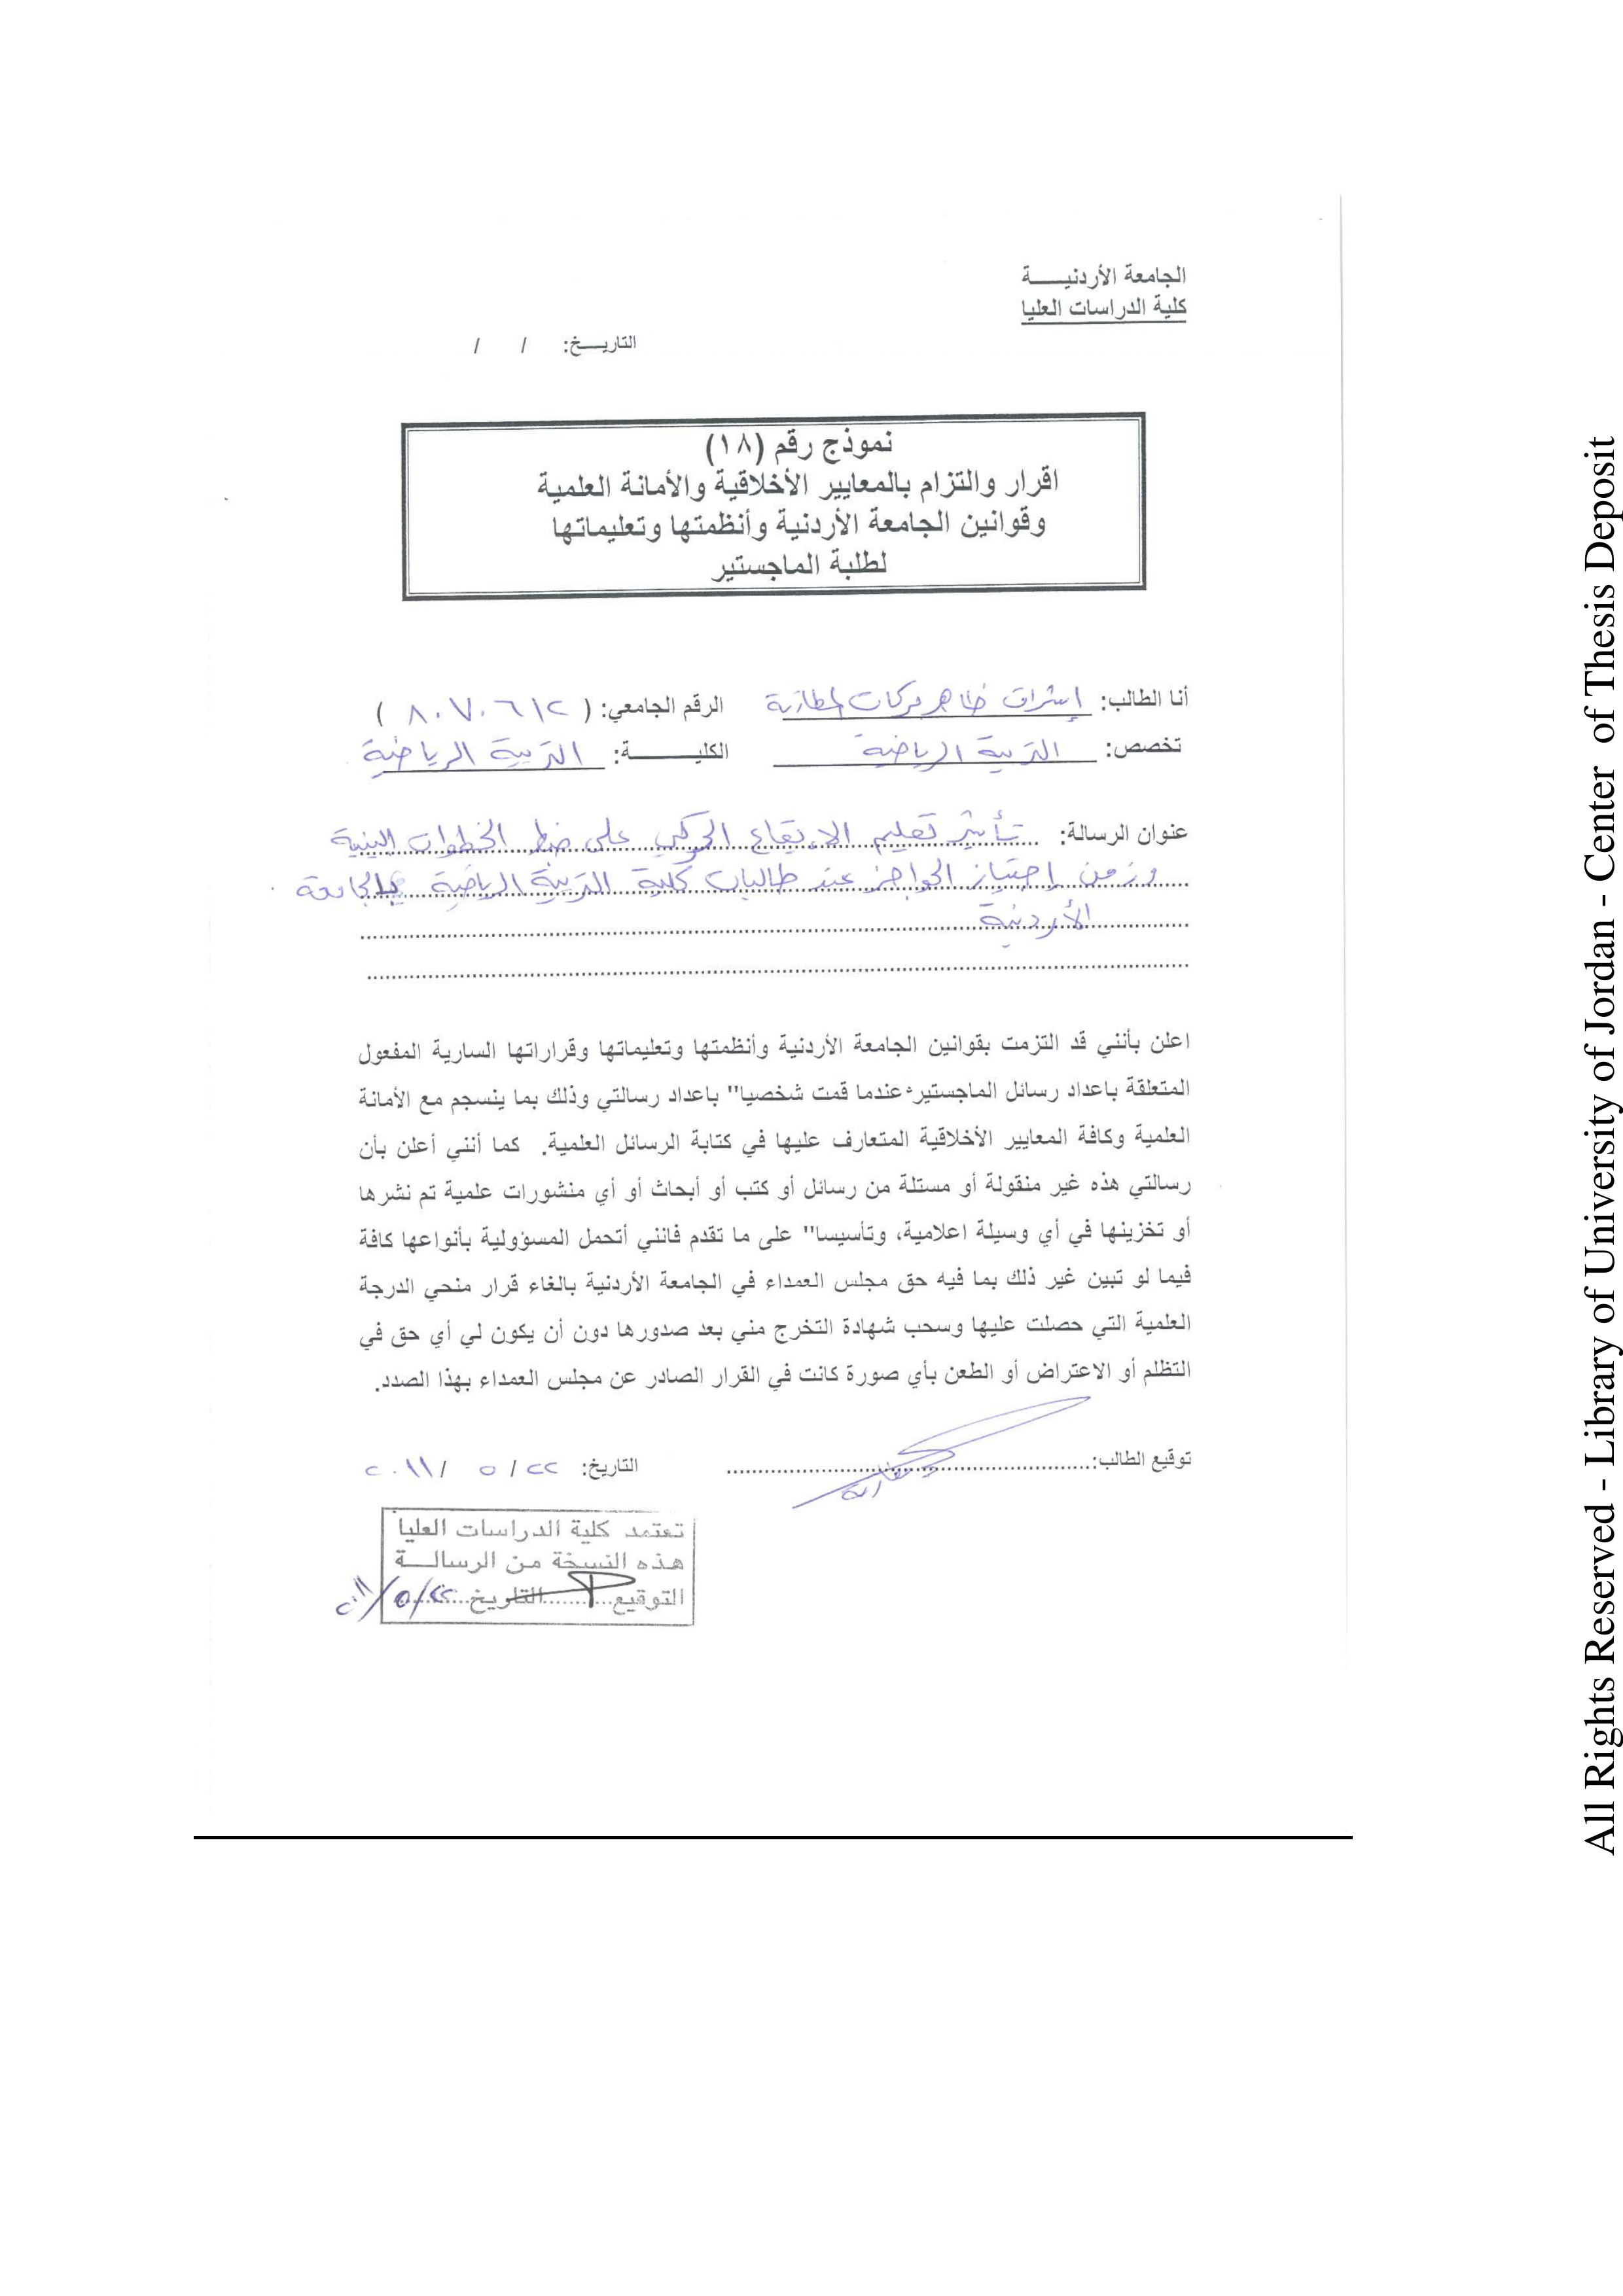 الجامعة الأردنيـــــة
كلية الدراسات العليا
التاريـــخ: / /
نموذج رقم (١٨)
اقرار والتزام بالمعايير الأخلاقية والأمانة العلمية
وقوانين الجامعة الأردنية وأنظمتها وتعليماتها
لطلبة الماجستير
أنا الطالب: إشراق ظاهر بركات الرقم الجامعي: ( ٨٠٧٠٦١٢ )
تخصص: التربية الرياضية الكليـــــــة: التربية الرياضية
عنوان الرسالة: تأثير تعليم الإيقاع الحركي على ضبط الخطوات البينية
وزمن إجتياز الحواجز عند طالبات كلية التربية الرياضية بالجامعة
الأردنية
اعلن بأنني قد التزمت بقوانين الجامعة الأردنية وأنظمتها وتعليماتها وقراراتها السارية المفعول
المتعلقة باعداد رسائل الماجستير عندما قمت شخصيا" باعداد رسالتي وذلك بما ينسجم مع الأمانة
العلمية وكافة المعايير الأخلاقية المتعارف عليها في كتابة الرسائل العلمية. كما أنني أعلن بأن
رسالتي هذه غير منقولة أو مستلة من رسائل أو كتب أو أبحاث أو أي منشورات علمية تم نشرها
أو تخزينها في أي وسيلة اعلامية، وتأسيسا" على ما تقدم فانني أتحمل المسؤولية بأنواعها كافة
فيما لو تبين غير ذلك بما فيه حق مجلس العمداء في الجامعة الأردنية بالغاء قرار منحي الدرجة
العلمية التي حصلت عليها وسحب شهادة التخرج مني بعد صدورها دون أن يكون لي أي حق في
التظلم أو الاعتراض أو الطعن بأي صورة كانت في القرار الصادر عن مجلس العمداء بهذا الصدد.
توقيع الطالب: التاريخ: ٢٢ / ٥ / ٢٠١١
تعتمد كلية الدراسات العليا
هذه النسخة من الرسالـــة
التوقيع............التاريخ ٢٢/٥/٢٠١١
All Rights Reserved - Library of University of Jordan - Center of Thesis Deposit